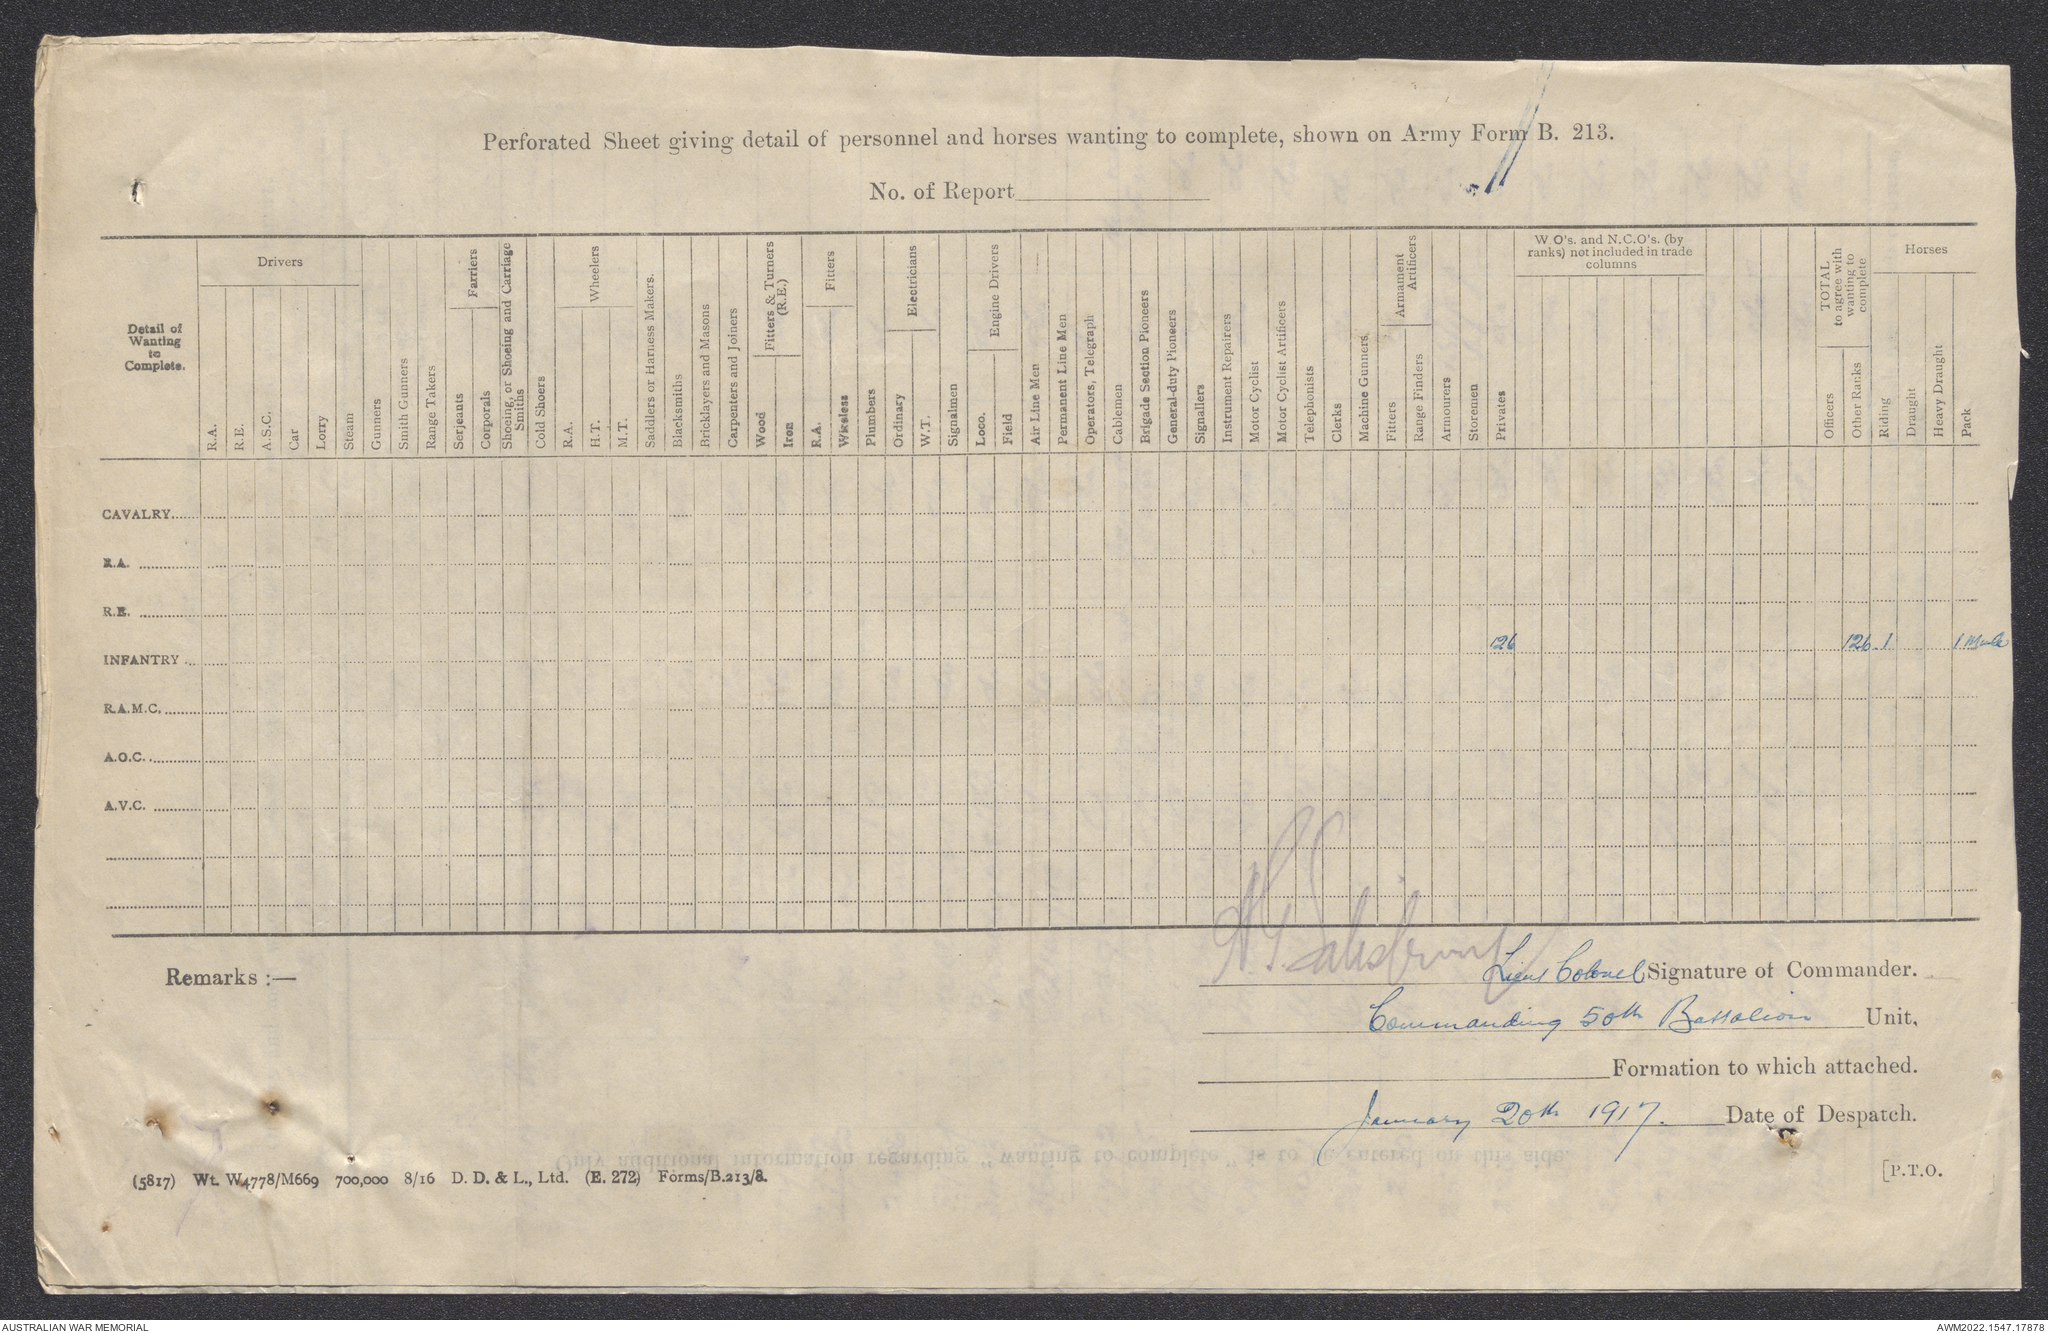 Perforated Sheet giving detail of personnel and horses wanting to complete, shown on Army Form B. 213.
No. of Report
Detail of
Wanting
to
Complete.
Drivers
R.A.
R.E.
A.S.C.
Car
Lorry
Steam
Gunners
Smith Gunners
Range Takers
Farriers
Serjeants
Corporals
Shoeing, or Shoeing and Carriage
Smiths
Cold Shoers
Wheelers
R.A.
H.T.
M.T.
Saddlers or Harness Makers.
Blacksmiths
Bricklayers and Masons
Carpenters and Joiners
Fitters & Turners
(R.E.)
Wood
Iron
Fitters
R.A.
Wireless
Plumbers
Electricians
Ordinary
W.T.
Signalmen
Engine Drivers
Loco.
Field
Air Line Men
Permanent Line Men
Operators, Telegraph
Cablemen
Brigade Section Pioneers
General-duty Pioneers
Signallers
Instrument Repairers
Motor Cyclist
Motor Cyclist Artificers
Telephonists
Clerks
Machine Gunners
Armament
Artificers
Fitters
Range Finders
Armourers
Storemen
Privates
W.O's. and N.C.O's. (by
ranks) not included in trade
columns
TOTAL
to agree with
wanting to
complete
Officers
Other Ranks
Horses
Riding
Draught
Heavy Draught
Pack
CAVALRY
R.A.
R.E.
INFANTRY 126 126 1 1 Mule
R.A.M.C.
A.O.C.
A.V.C.
Remarks :—
Lieut Colonel Signature of Commander.
Commanding 50th Battalion Unit,
Formation to which attached.
January 20th 1917. Date of Despatch.
Only additional information regarding "wanting to complete" is to be entered on this side.
(5817) Wt. W4778/M669 700,000 8/16 D. D. & L., Ltd. (E. 272) Forms/B.213/8.
[P.T.O.
AUSTRALIAN WAR MEMORIAL
AWM2022.1547.17878